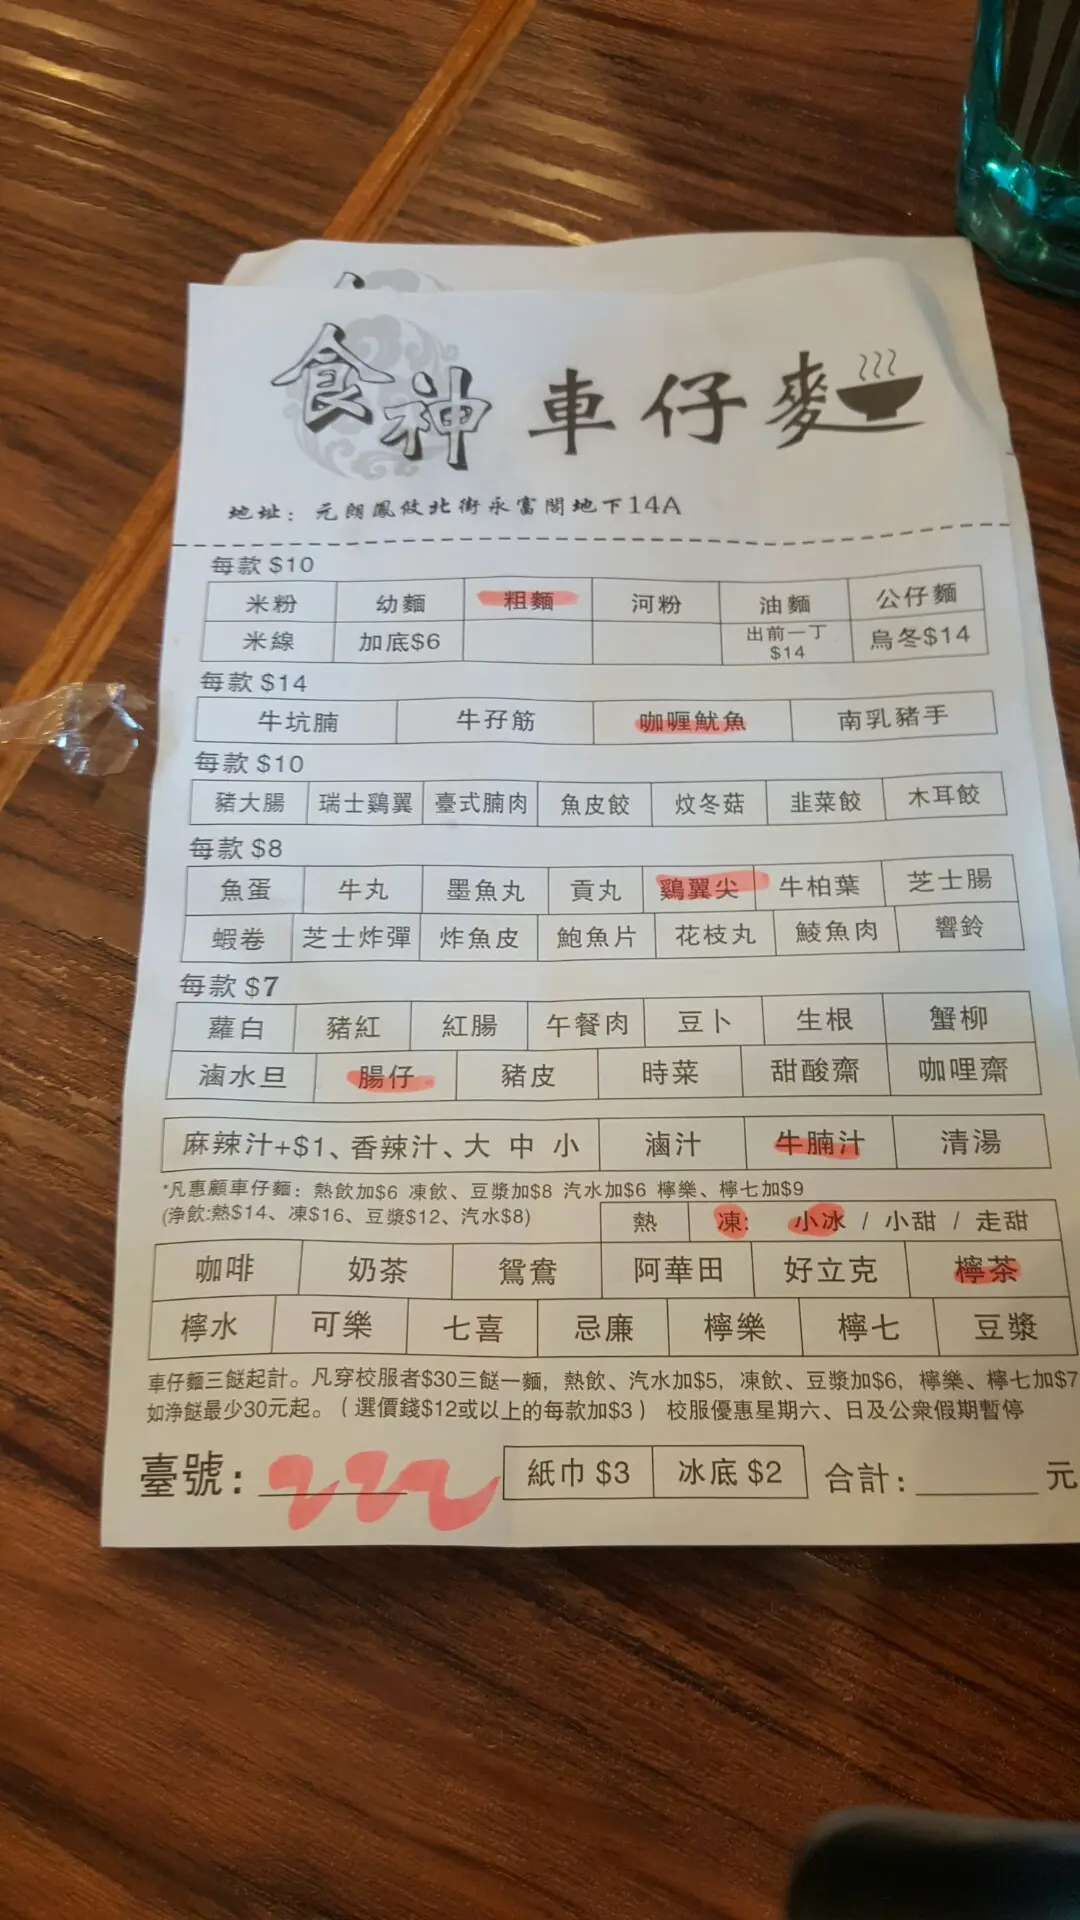 食神車仔麵
地址：元朗鳳攸北街永富閣地下14A
每款 $10
米粉 幼麵 粗麵 河粉 油麵 公仔麵
米線 加底$6 出前一丁 $14 烏冬$14
每款 $14
牛坑腩 牛孖筋 咖喱魷魚 南乳豬手
每款 $10
豬大腸 瑞士鷄翼 臺式腩肉 魚皮餃 炆冬菇 韭菜餃 木耳餃
每款 $8
魚蛋 牛丸 墨魚丸 貢丸 鷄翼尖 牛柏葉 芝士腸
蝦卷 芝士炸彈 炸魚皮 鮑魚片 花枝丸 鯪魚肉 響鈴
每款 $7
蘿白 豬紅 紅腸 午餐肉 豆卜 生根 蟹柳
滷水旦 腸仔 豬皮 時菜 甜酸齋 咖哩齋
麻辣汁+$1、香辣汁、大 中 小 滷汁 牛腩汁 清湯
*凡惠顧車仔麵：熱飲加$6 凍飲、豆漿加$8 汽水加$6 檸樂、檸七加$9
(净飲:熱$14、凍$16、豆漿$12、汽水$8) 熱 凍: 小冰 / 小甜 / 走甜
咖啡 奶茶 鴛鴦 阿華田 好立克 檸茶
檸水 可樂 七喜 忌廉 檸樂 檸七 豆漿
車仔麵三餸起計。凡穿校服者$30三餸一麵，熱飲、汽水加$5，凍飲、豆漿加$6，檸樂、檸七加$7
如净餸最少30元起。（選價錢$12或以上的每款加$3） 校服優惠星期六、日及公衆假期暫停
臺號： 紙巾 $3 冰底 $2 合計： 元